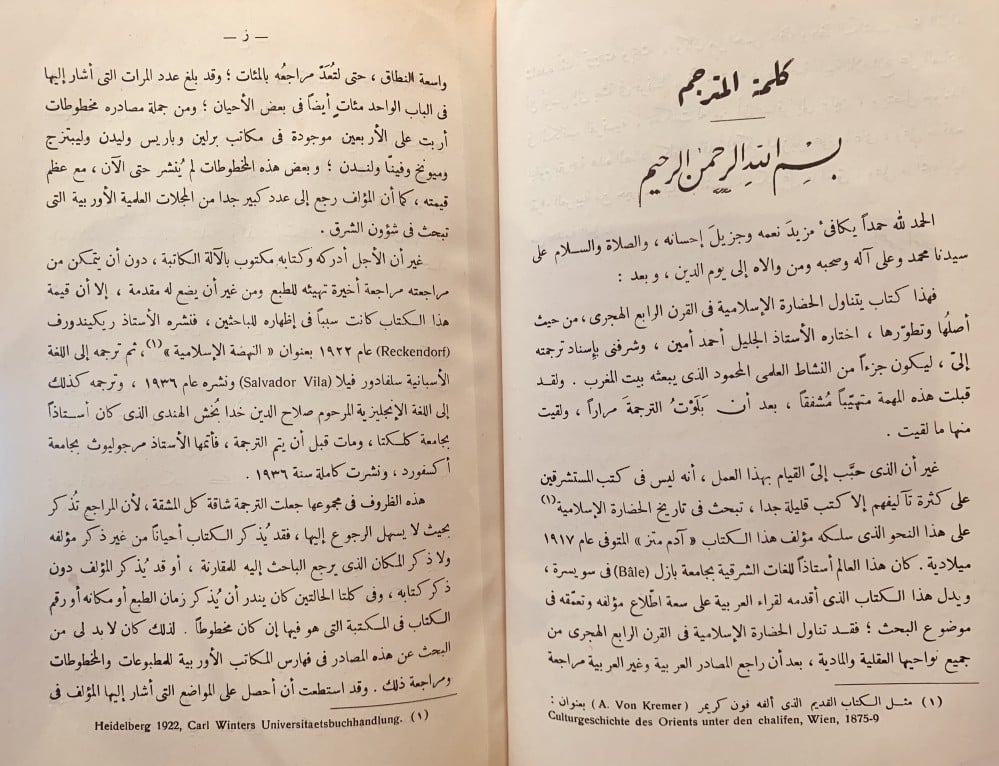 كلمة المترجم
بسم الله الرحمن الرحيم
الحمد لله حمداً يكافئ مزيدَ نعمه وجزيلَ إحسانه ، والصلاة والسلام على
سيدنا محمد وعلى آله وصحبه ومن والاه إلى يوم الدين ، وبعد :
فهذا كتاب يتناول الحضارة الإسلامية فى القرن الرابع الهجرى ، من حيث
أصلُها وتطوّرها ، اختاره الأستاذ الجليل أحمد أمين ، وشرفنى بإسناد ترجمته
إلىّ ، ليكون جزءاً من النشاط العلمى المحمود الذى يبعثه بيت المغرب . ولقد
قبلت هذه المهمة متهيّباً مُشفقا ، بعد أن بَلَوْتُ الترجمةَ مراراً ، ولقيت
منها ما لقيت .
غير أن الذى حبَّب إلىّ القيام بهذا العمل ، أنه ليس فى كتب المستشرقين
على كثرة تآليفهم إلا كتب قليلة جدا ، تبحث فى تاريخ الحضارة الإسلامية(١)
على هذا النحو الذى سلكه مؤلف هذا الكتاب « آدم متز » المتوفى عام ١٩١٧
ميلادية . كان هذا العالم أستاذاً للغات الشرقية بجامعة بازل (Bâle) فى سويسرة ،
ويدل هذا الكتاب الذى أقدمه لقراء العربية على سعة اطّلاع مؤلفه وتعمّقه فى
موضوع البحث ؛ فقد تناول الحضارة الإسلامية فى القرن الرابع الهجرى من
جميع نواحيها العقلية والمادية ، بعد أن راجع المصادر العربية وغير العربية مراجعة
(١) مثل الكتاب القديم الذى ألفه فون كريمر (A. Von Kremer) بعنوان :
Culturgeschichte des Orients unter den chalifen, Wien, 1875-9
— ز —
واسعة النطاق ، حتى لتُعَدّ مراجعُه بالمئات ؛ وقد بلغ عدد المرات التى أشار إليها
فى الباب الواحد مئاتٍ أيضاً فى بعض الأحيان ؛ ومن جملة مصادره مخطوطات
أربت على الأربعين موجودة فى مكاتب برلين وباريس وليدن وليبتزج
وميونخ وفينّا ولندن ؛ وبعض هذه المخطوطات لم يُنشر حتى الآن ، مع عظم
قيمته ، كما أن المؤلف رجع إلى عدد كبير جدا من المجلات العلمية الأوربية التى
تبحث فى شؤون الشرق .
غير أن الأجل أدركه وكتابه مكتوب بالآلة الكاتبة ، دون أن يتمكن من
مراجعته مراجعة أخيرة تهيئه للطبع ومن غير أن يضع له مقدمة ، إلا أن قيمة
هذا الكتاب كانت سبباً فى إظهاره للباحثين ، فنشره الأستاذ ريكيندورف
(Reckendorf) عام ١٩٢٢ بعنوان « النهضة الإسلامية »(١)، ثم ترجمه إلى اللغة
الأسبانية سلفادور فيلا (Salvador Vila) ونشره عام ١٩٣٦ ، وترجمه كذلك
إلى اللغة الإنجليزية المرحوم صلاح الدين خدا بُخش الهندى الذى كان أستاذاً
بجامعة كلكتا ، ومات قبل أن يتم الترجمة ، فأتمها الأستاذ مرجوليوث بجامعة
أكسفورد ، ونشرت كاملة سنة ١٩٣٦ .
هذه الظروف فى مجموعها جعلت الترجمة شاقة كل المشقة ، لأن المراجع تُذكر
بحيث لا يسهل الرجوع إليها ، فقد يُذكر الكتاب أحيانًا من غير ذكر مؤلفه
ولا ذكر المكان الذى يرجع الباحث إليه للمقارنة ، أو قد يُذكر المؤلف دون
ذكر كتابه ، وفى كلتا الحالتين كان يندر أن يُذكر زمان الطبع أو مكانه أو رقم
الكتاب فى المكتبة التى هو فيها إن كان مخطوطاً . لذلك كان لا بد لى من
البحث عن هذه المصادر فى فهارس المكاتب الأوربية للمطبوعات والمخطوطات
ومراجعة ذلك . وقد استطعت أن أحصل على المواضع التى أشار إليها المؤلف فى
(١) Heidelberg 1922, Carl Winters Universitaetsbuchhandlung.